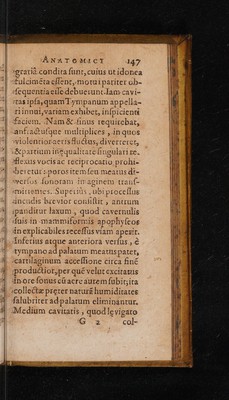 ANATOMICI 147
gratiâ condita sunt, cuius ut idonea
fulcimẽta essent, motui pariter ob-
sequentia esse debuerunt. Iam cavi-
tas ipsa, quam Tympanum appella-
ri innui, variam exhibet, inspicienti
faciem. Nam & sinus requirebat,
anfractusque multiplices, in quos
violentior aeris fluctus, diverteret,
& partium inęqualitate singulari ne
flexus vocis ac reciprocatio prohi-
beretur: poros item seu meatus di-
versos sonorum imaginem trans-
mittentes. Superiùs, ubi processus
incudis brevior consistit, antrum
panditur laxum, quod cavernulis
suis in mammiformis apophyseos
inexplicabiles recessus viam aperit.
Inferius atque anteriora versus, è
tympano ad palatum meatus patet,
cartilaginum accessione circa finẽ
productior, per quẽ velut excitatus
in ore sonus cũ aere autem subit; ita
collectæ pręter naturã humiditates
salubriter ad palatum eliminantur.
Medium cavitatis, quod lęvigato
G 2 col-